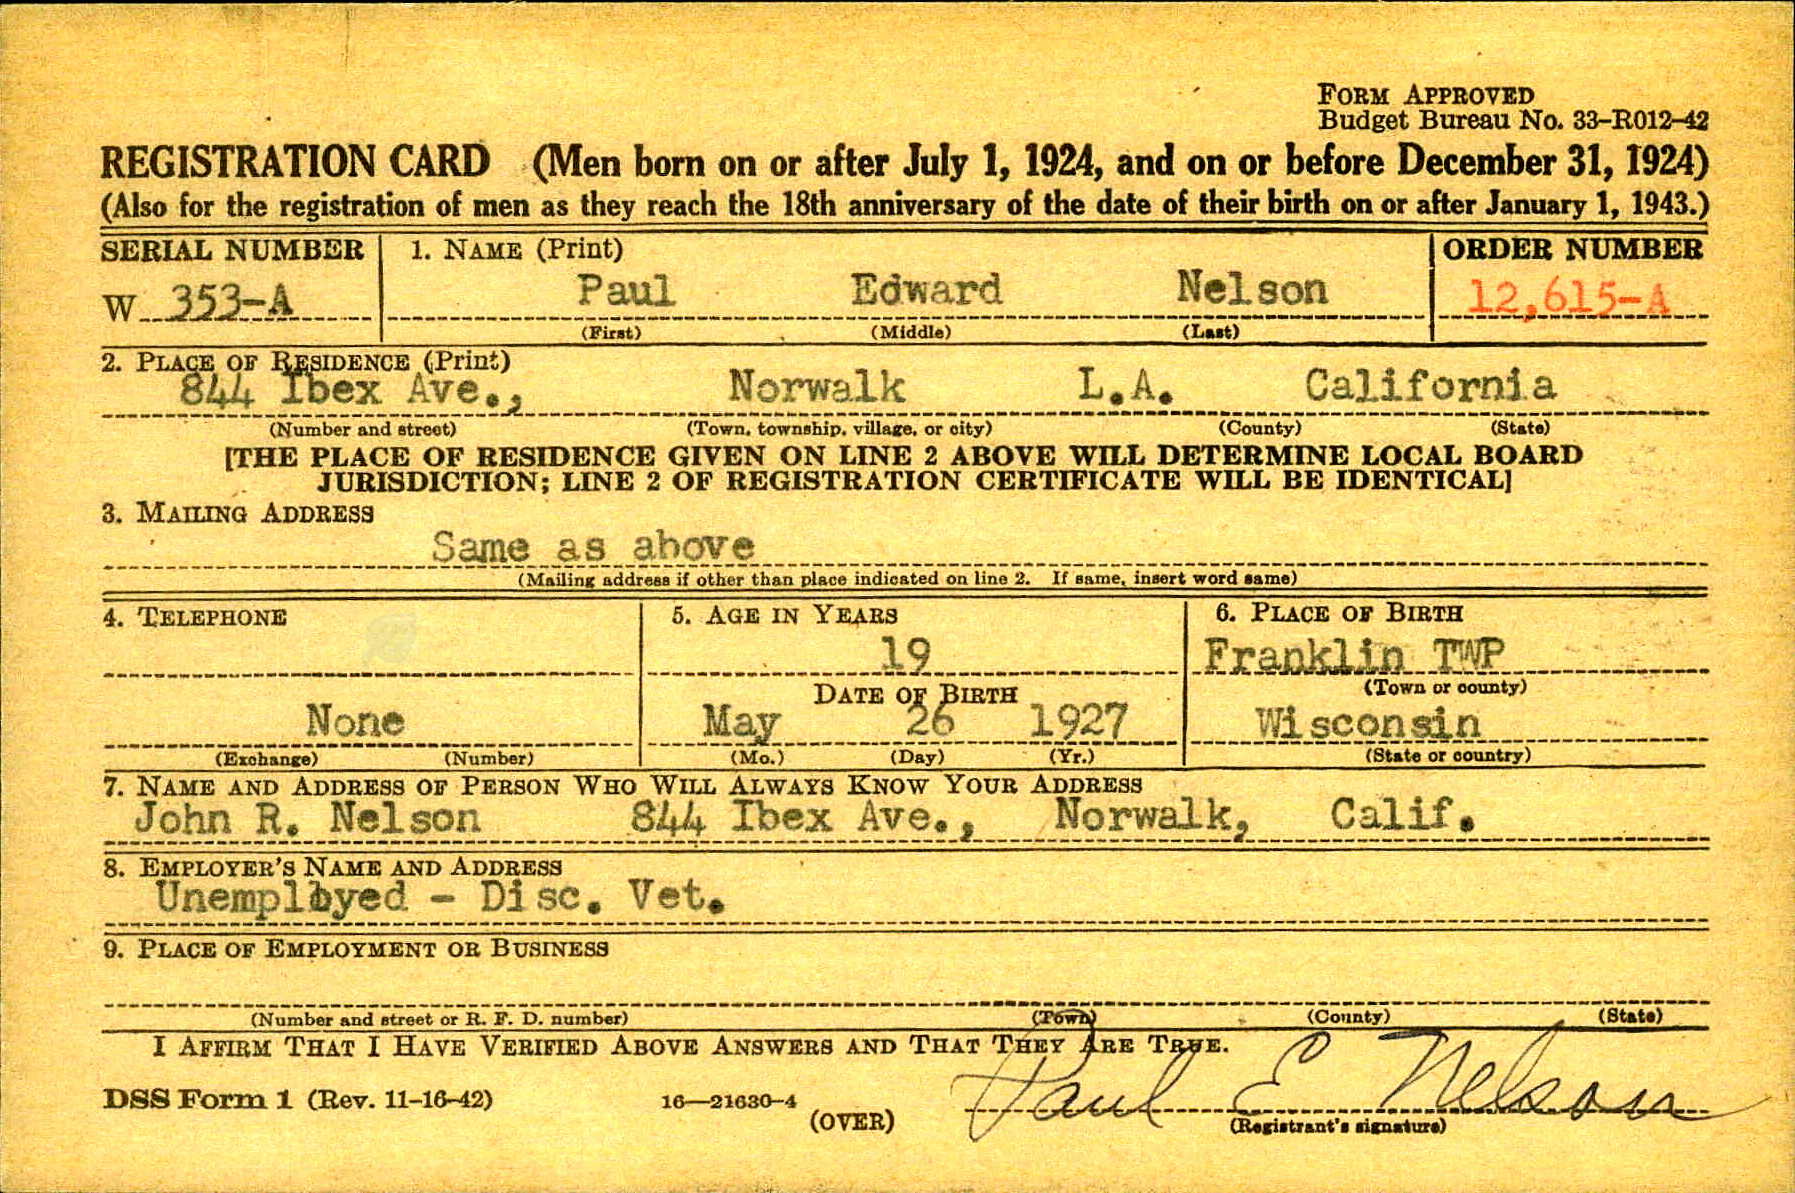 FORM APPROVED
Budget Bureau No. 33-R012-42
REGISTRATION CARD (Men born on or after July 1, 1924, and on or before December 31, 1924)
(Also for the registration of men as they reach the 18th anniversary of the date of their birth on or after January 1, 1943.)
SERIAL NUMBER 1. NAME (Print) ORDER NUMBER
W 353-A Paul Edward Nelson 12,615-A
(First) (Middle) (Last)
2. PLACE OF RESIDENCE (Print)
844 Ibex Ave., Norwalk L.A. California
(Number and street) (Town, township, village, or city) (County) (State)
[THE PLACE OF RESIDENCE GIVEN ON LINE 2 ABOVE WILL DETERMINE LOCAL BOARD
JURISDICTION; LINE 2 OF REGISTRATION CERTIFICATE WILL BE IDENTICAL]
3. MAILING ADDRESS
Same as above
(Mailing address if other than place indicated on line 2. If same, insert word same)
4. TELEPHONE 5. AGE IN YEARS 6. PLACE OF BIRTH
19 Franklin TWP
DATE OF BIRTH (Town or county)
None May 26 1927 Wisconsin
(Exchange) (Number) (Mo.) (Day) (Yr.) (State or country)
7. NAME AND ADDRESS OF PERSON WHO WILL ALWAYS KNOW YOUR ADDRESS
John R. Nelson 844 Ibex Ave., Norwalk, Calif.
8. EMPLOYER'S NAME AND ADDRESS
Unemployed - Disc. Vet.
9. PLACE OF EMPLOYMENT OR BUSINESS
(Number and street or R. F. D. number) (Town) (County) (State)
I AFFIRM THAT I HAVE VERIFIED ABOVE ANSWERS AND THAT THEY ARE TRUE.
DSS Form 1 (Rev. 11-16-42) 16—21630-4 (OVER) Paul E Nelson
(Registrant's signature)